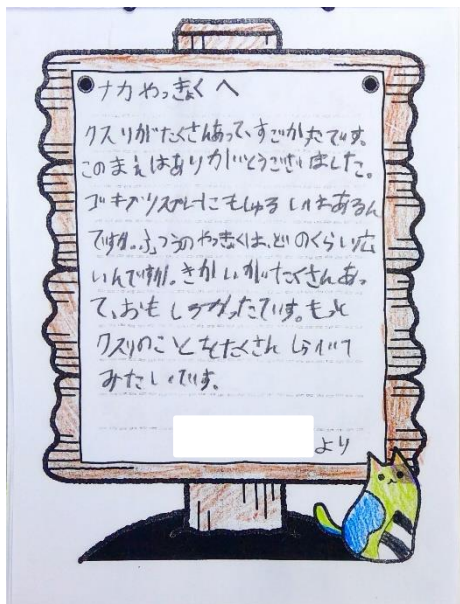 ナカやっきょくへ
クスリがたくさんあって、すごかたです。
このまえはありがとうございました。
ゴキブリスプレーにもしゅるいはあるん
ですか。ふつうのやっきくは、どのくらい広
いんですか。きかいがたくさんあっ
て、おもしろかったです。もっと
クスリのことをたくさんしらべて
みたいです。
より